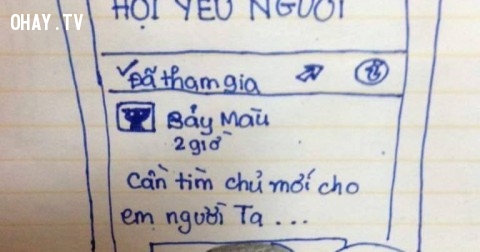 OHAY.TV
HỘI YÊU NGƯỜI
Đã tham gia
Bảy Màu
2 giờ
Cần tìm chủ mới cho
em người Ta ...